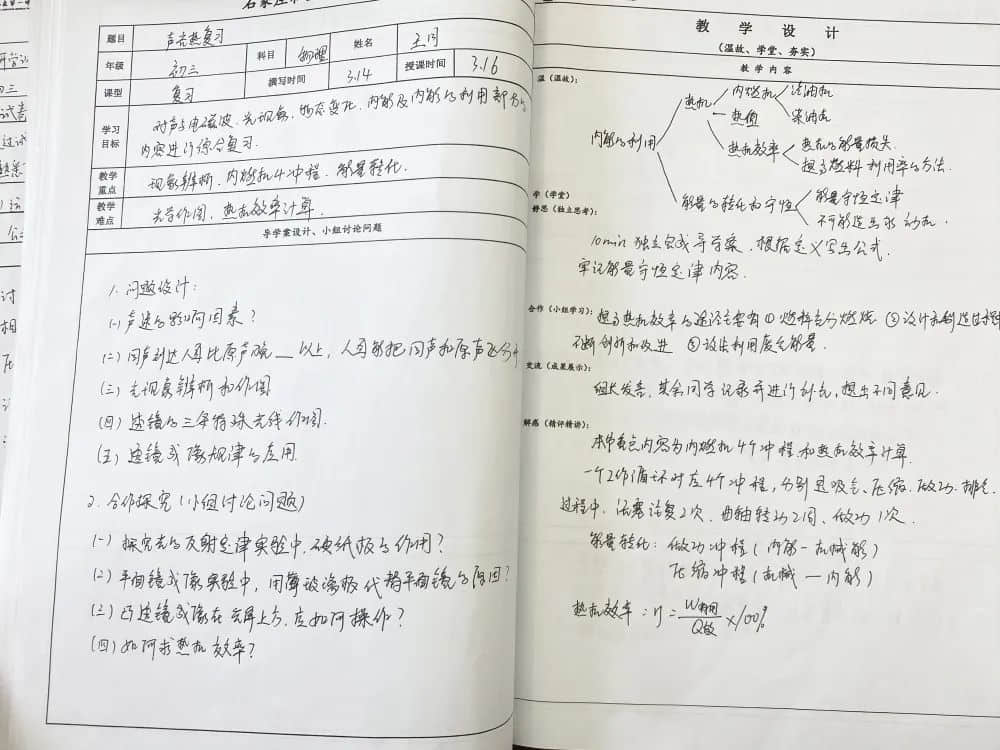 题目 声光热复习
年级 初三 科目 物理 姓名 王闩
课型 复习 撰写时间 3.14 授课时间 3.16
学习目标 对声与电磁波、光现象、物态变化、内能及内能的利用部分的
内容进行综合复习.
教学重点 现象辨析、内燃机4冲程、能量转化.
教学难点 光学作图、热机效率计算.
导学案设计、小组讨论问题
1. 问题设计:
(一) 声速的影响因素?
(二) 回声到达人耳比原声晚__以上, 人耳能把回声和原声区分开
(三) 光现象辨析和作图
(四) 透镜的三条特殊光线作图.
(五) 透镜成像规律的应用.
2. 合作探究 (小组讨论问题)
(一) 探究光的反射定律实验中, 硬纸板的作用?
(二) 平面镜成像实验中, 用薄玻璃板代替平面镜的原因?
(三) 凸透镜成像在光屏上方, 应如何操作?
(四) 如何求热机效率?
教 学 设 计
(温故、学堂、夯实)
教 学 内 容
温(温故):
内能的利用
热机
内燃机
汽油机
柴油机
热值
热机效率
热机的能量损失
提高燃料利用率的方法.
能量的转化和守恒
能量守恒定律
不可能造出永动机.
学(学堂)
静思(独立思考):
10min 独立完成导学案. 根据定义写出公式.
牢记能量守恒定律内容.
合作(小组学习): 提高热机效率的途径主要有 ① 燃料充分燃烧 ② 设计和制造过程中
不断创新和改进 ③ 设法利用废气能量.
交流(成果展示):
组长发告, 其余同学记录并进行补充, 提出不同意见.
解惑(精评精讲):
本节重点内容为内燃机4个冲程和热机效率计算.
一个工作循环对应4个冲程, 分别是吸气、压缩、做功、排气.
过程中, 活塞往复2次、曲轴转动2周、做功1次.
能量转化: 做功冲程 (内能—机械能)
压缩冲程 (机械—内能)
热机效率: η = W有用/Q放 ×100%